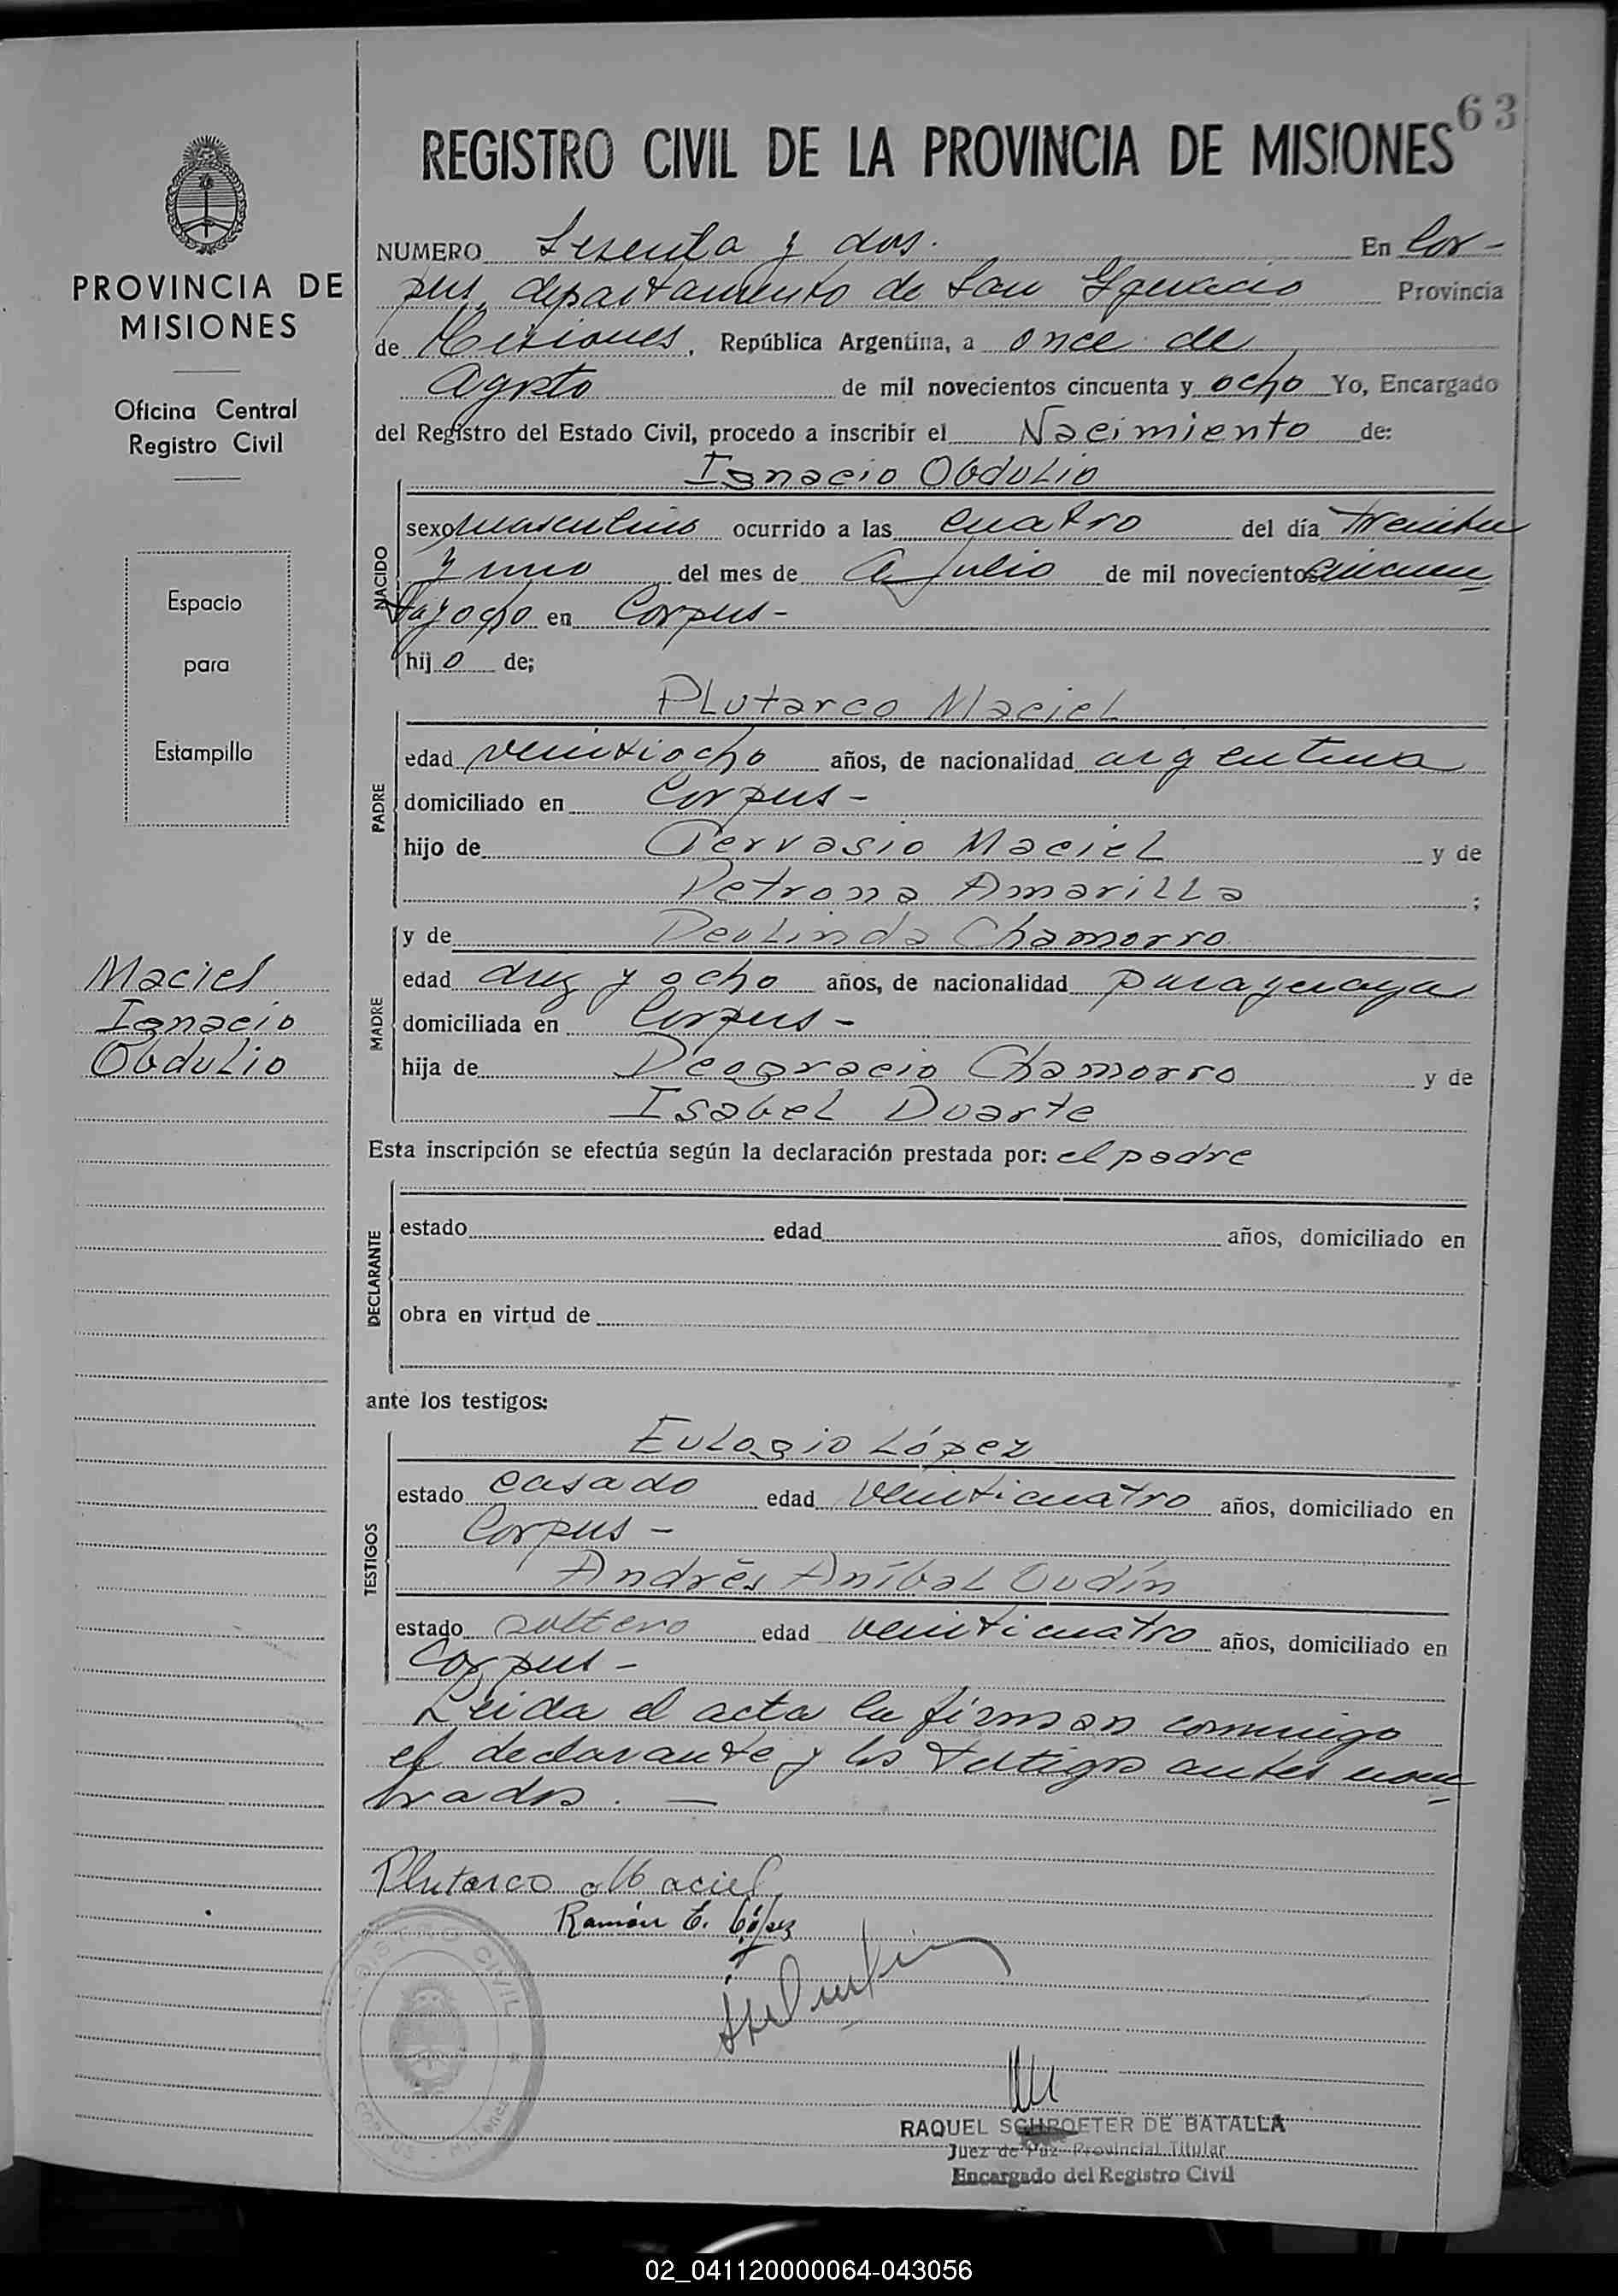 63
REGISTRO CIVIL DE LA PROVINCIA DE MISIONES
PROVINCIA DE
MISIONES
Oficina Central
Registro Civil
Espacio
para
Estampilla
Maciel
Ignacio
Obdulio
NUMERO Sesenta y dos. En Cor-
pus, departamento de San Ignacio Provincia
de Misiones, República Argentina, a once de
Agosto de mil novecientos cincuenta y ocho Yo, Encargado
del Registro del Estado Civil, procedo a inscribir el Nacimiento de:
Ignacio Obdulio
NACIDO
sexo masculino ocurrido a las cuatro del día treinta
y uno del mes de Julio de mil novecientos cincuen-
ta y ocho en Corpus-
hijo de;
Plutarco Maciel
PADRE
edad veintiocho años, de nacionalidad argentina
domiciliado en Corpus-
hijo de Gervasio Maciel y de
Petrona Amarilla ;
MADRE
y de Deolinda Chamorro
edad diez y ocho años, de nacionalidad paraguaya
domiciliada en Corpus-
hija de Deogracio Chamorro y de
Isabel Duarte
Esta inscripción se efectúa según la declaración prestada por: el padre
DECLARANTE
estado edad años, domiciliado en
obra en virtud de
ante los testigos:
Eulogio López
TESTIGOS
estado casado edad veinticuatro años, domiciliado en
Corpus-
Andrés Aníbal Oudín
estado soltero edad veinticuatro años, domiciliado en
Corpus-
Leida el acta la firman conmigo
el declarante y los testigos antes nom-
brados. —
Plutarco Maciel
Ramón E. López
REGISTRO CIVIL
CORPUS - Misiones
RAQUEL SCHROETER DE BATALLA
Juez de Paz Provincial Titular
Encargado del Registro Civil
02_041120000064-043056